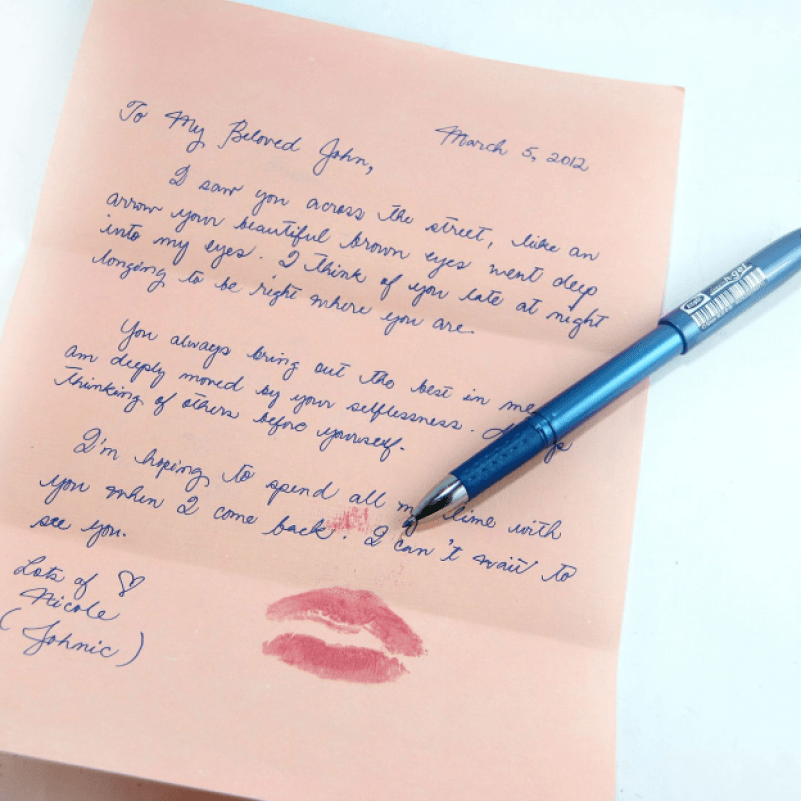 March 5, 2012
To My Beloved John,
I saw you across the street, like an
arrow your beautiful brown eyes went deep
into my eyes. I think of you late at night
longing to be right where you are.
You always bring out the best in me
am deeply moved by your selflessness.
thinking of others before yourself.
I'm hoping to spend all my time with
you when I come back. I can't wait to
see you.
Lots of ♡
Nicole
(Johnic)